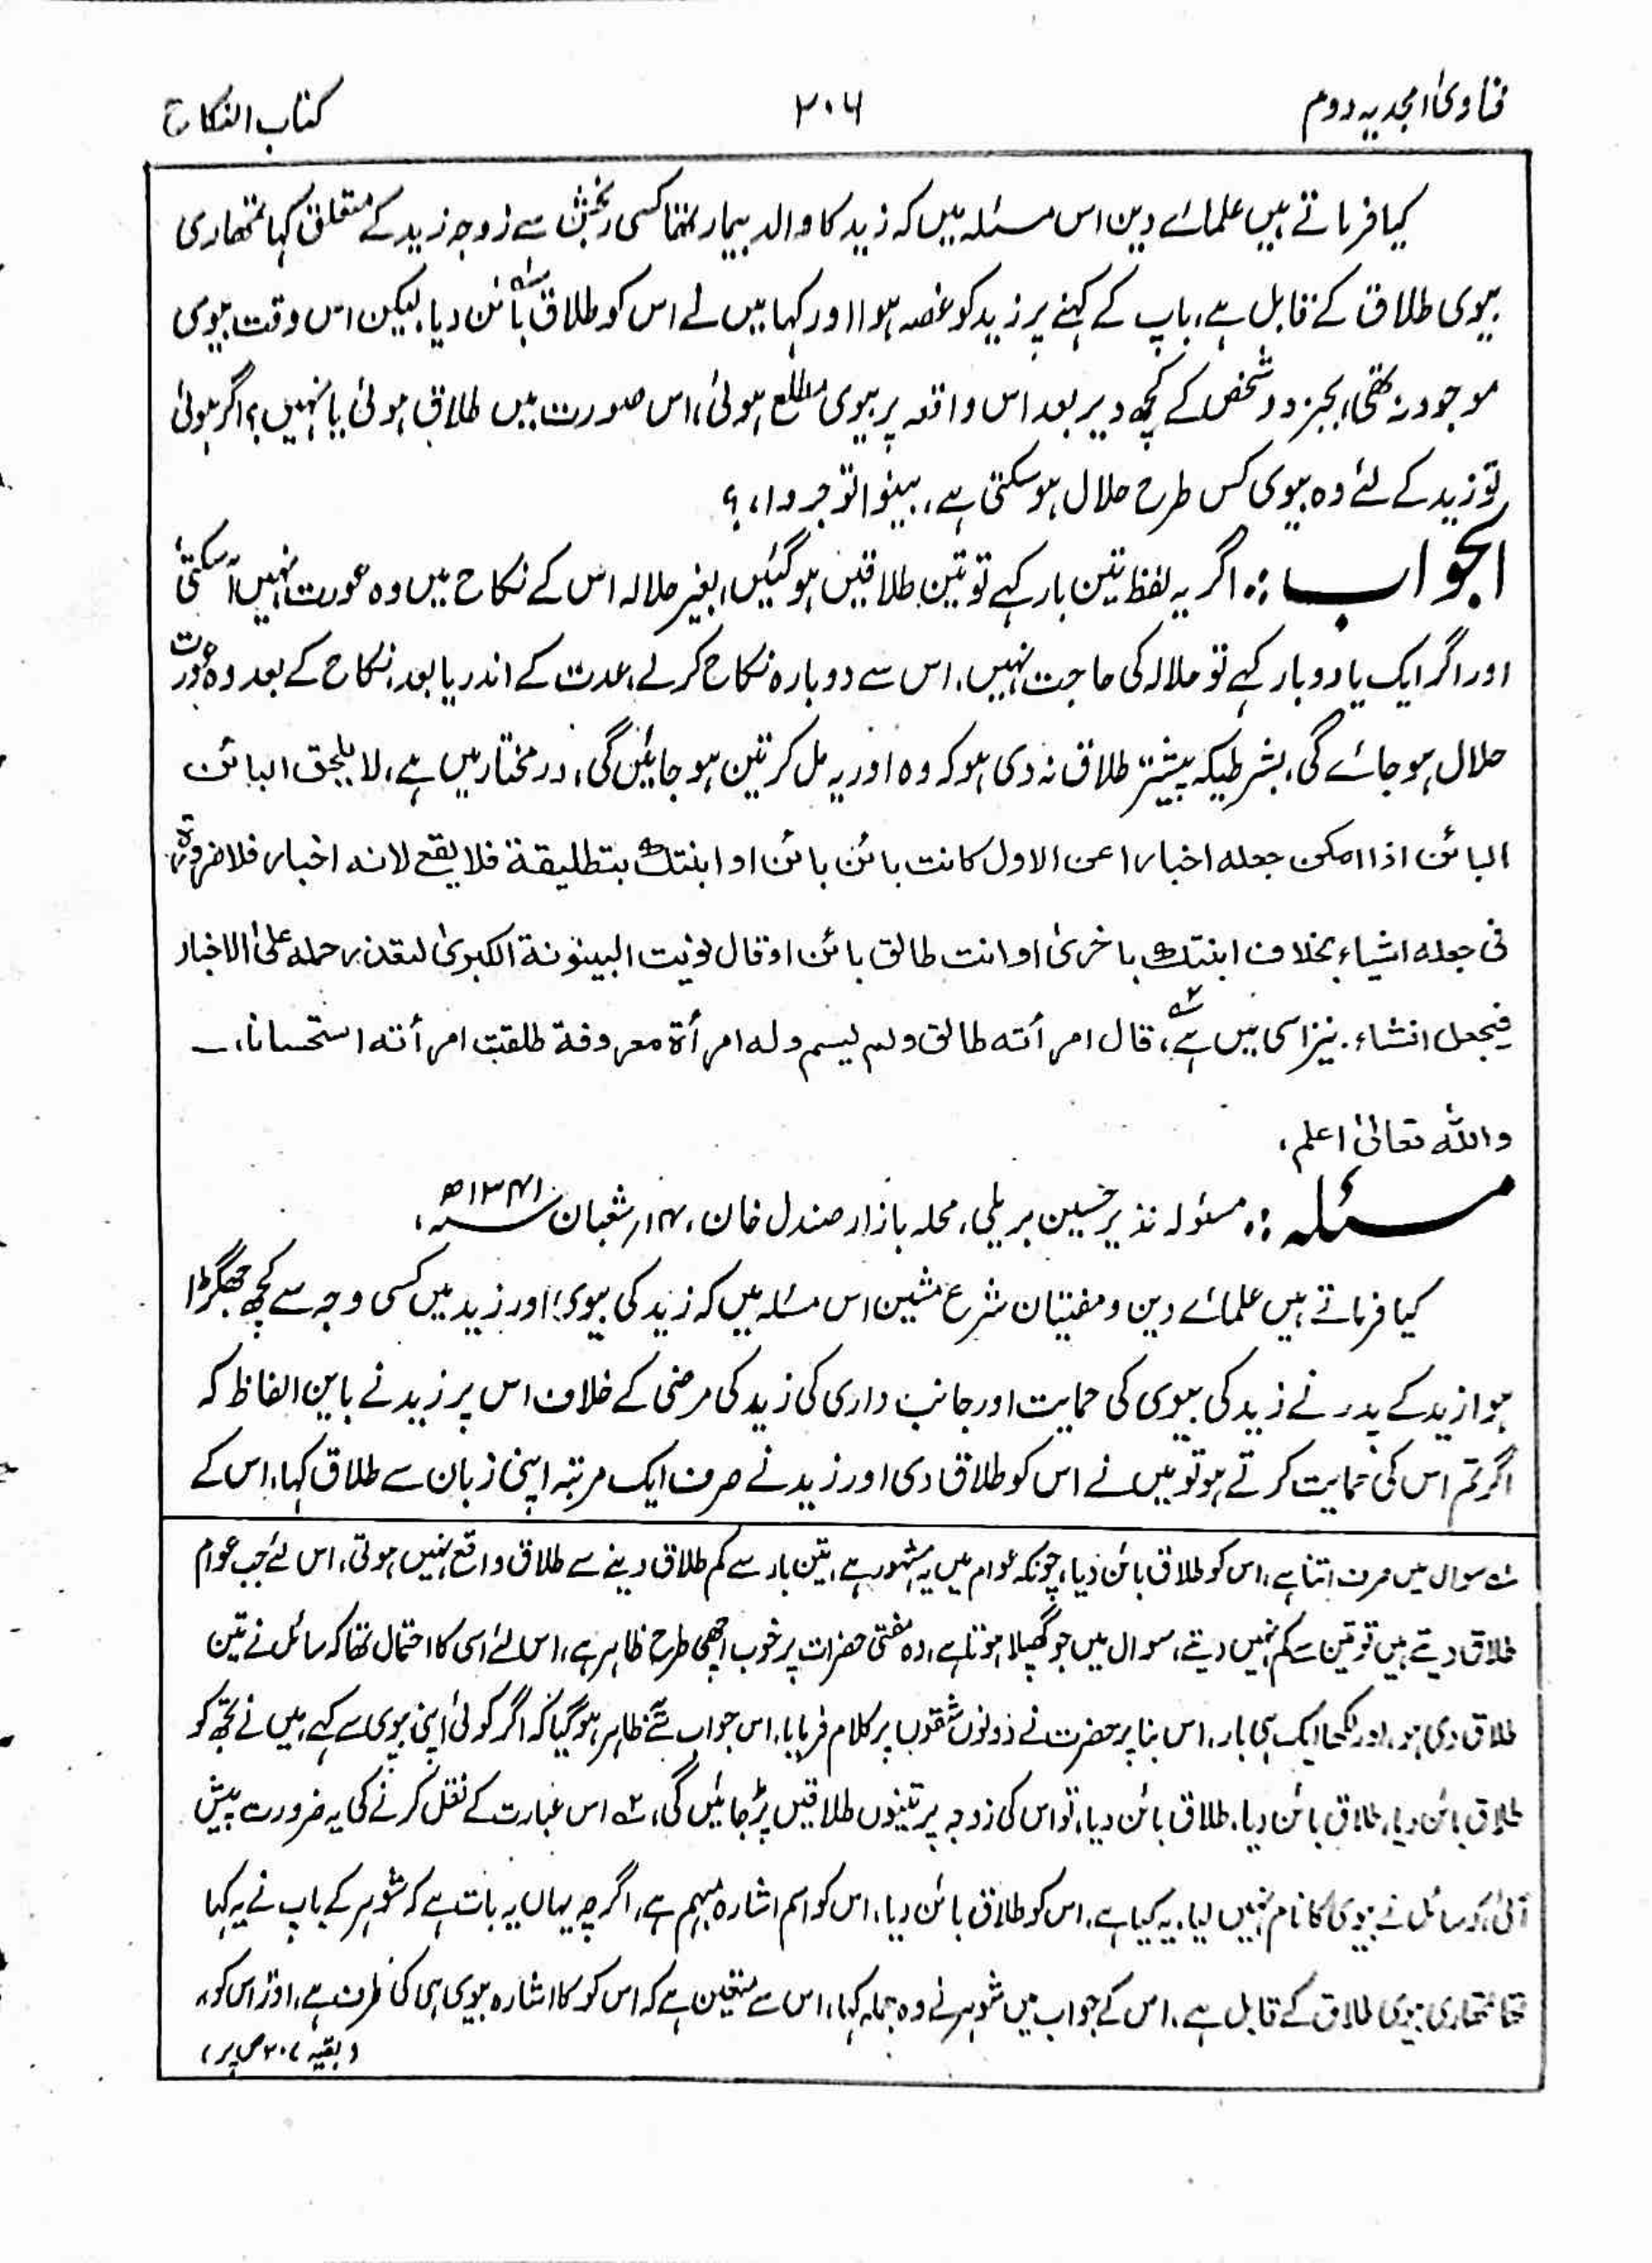 فتاویٰ امجدیہ دوم ۲۰۶ کتاب النکاح
کیا فرماتے ہیں علمائے دین اس مسئلہ میں کہ زید کا والد بیمار تھا کسی رنجش سے زوجہ زید کے متعلق کہا تمھاری
بیوی طلاق کے قابل ہے، باپ کے کہنے پر زید کو غصہ ہوا اور کہا میں نے اس کو طلاق بائن دیا۔ لیکن اس وقت بیوی
موجود نہ تھی، بجز دو شخص کے کچھ دیر بعد اس واقعہ پر بیوی مطلع ہوئی، اس صورت میں طلاق ہوئی یا نہیں؟ اگر ہوئی
تو زید کے لئے وہ بیوی کس طرح حلال ہو سکتی ہے، بینوا توجروا،؟
الجواب :: اگر یہ لفظ تین بار کہے تو تین طلاقیں ہو گئیں، بغیر حلالہ اس کے نکاح میں وہ عورت نہیں آ سکتی
اور اگر ایک یا دو بار کہے تو حلالہ کی حاجت نہیں، اس سے دوبارہ نکاح کر لے، عدت کے اندر یا بعد، نکاح کے بعد وہ عورت
حلال ہو جائے گی، بشرطیکہ پیشتر طلاق نہ دی ہو کہ وہ اور یہ مل کر تین ہو جائیں گی، درمختار میں ہے، لا یلحق البائن
البائن اذا امکن جعلہ اخبارا عن الاول کانت بائن بائن او ابنتک بتطلیقة فلا یقع لانہ اخبار فلا ضرورة
فی جعلہ انشاء بخلاف ابنتک باخریٰ او انت طالق بائن او قال نویت البینونة الکبریٰ لتعذر حملہ علی الاخبار
فیجعل انشاء۔ نیز اسی میں ہے ۲؎، قال امرأتہ طالق ولم یسم ولہ امرأة معروفة طلقت امرأتہ استحسانا، ـ
واللہ تعالیٰ اعلم،
مسئلہ :: مسئولہ نذیر حسین بریلی، محلہ بازار صندل خان، ۱۴؍ شعبان ۱۳۴۱ھ،
کیا فرماتے ہیں علمائے دین و مفتیان شرع متین اس مسئلہ میں کہ زید کی بیوی اور زید میں کسی وجہ سے کچھ جھگڑا
ہوا زید کے پدر نے زید کی بیوی کی حمایت اور جانب داری کی زید کی مرضی کے خلاف اس پر زید نے باین الفاظ کہ
اگر تم اس کی حمایت کرتے ہو تو میں نے اس کو طلاق دی اور زید نے صرف ایک مرتبہ اپنی زبان سے طلاق کہا، اس کے
۱؎ سوال میں صرف اتنا ہے، اس کو طلاق بائن دیا، چونکہ عوام میں یہ مشہور ہے، تین بار سے کم طلاق دینے سے طلاق واقع نہیں ہوتی، اس لئے جب عوام
طلاق دیتے ہیں تو تین سے کم نہیں دیتے، سوال میں جو گھپلا ہوتا ہے، وہ مفتی حضرات پر خوب اچھی طرح ظاہر ہے، اس لئے اسی کا احتمال تھا کہ سائل نے تین
طلاق دی ہو، اور لکھا ایک ہی بار، اس بنا پر حضرت نے دونوں شقوں پر کلام فرمایا، اس جواب سے ظاہر ہو گیا کہ اگر کوئی اپنی بیوی سے کہے، میں نے تجھ کو
طلاق بائن دیا، طلاق بائن دیا، طلاق بائن دیا، تو اس کی زوجہ پر تینوں طلاقیں پڑ جائیں گی، ۲؎ اس عبارت کے نقل کرنے کی یہ ضرورت پیش
آئی، کہ سائل نے بیوی کا نام نہیں لیا، یہ کہا ہے، اس کو طلاق بائن دیا، اس کو اسم اشارہ مبہم ہے، اگرچہ یہاں یہ بات ہے کہ شوہر کے باپ نے یہ کہا
تھا تمھاری بیوی طلاق کے قابل ہے، اس کے جواب میں شوہر نے وہ جملہ کہا، اس سے متعین ہے کہ اس کو کا اشارہ بیوی ہی کی طرف ہے، اور اس کو،،
(بقیہ ۲۰۷ ص پر)